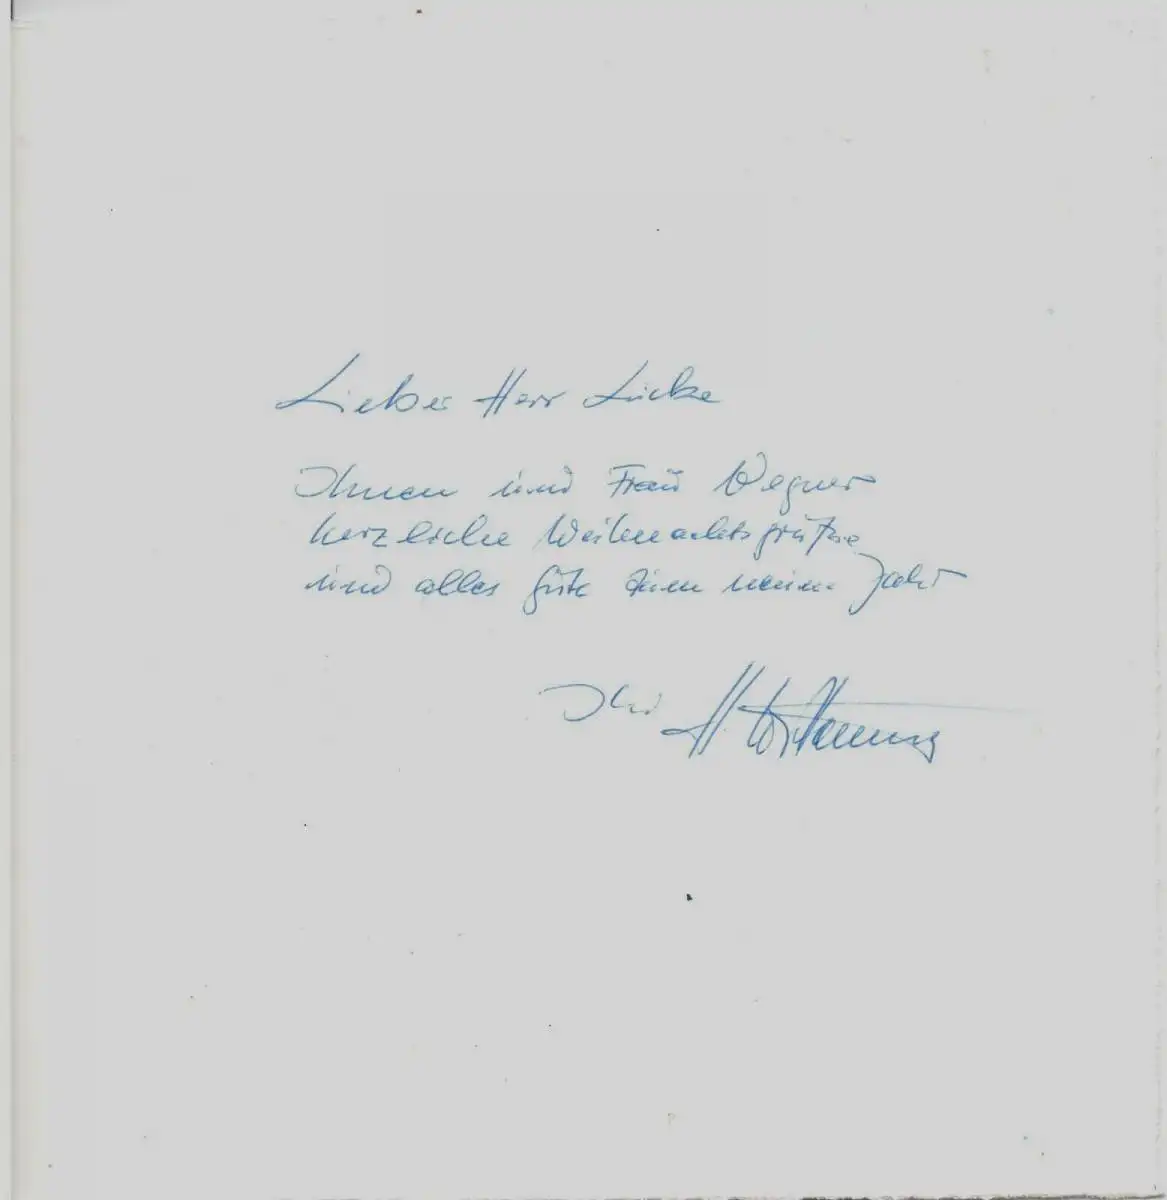 Lieber Herr Lücke
Ihnen und Frau Wegner
herzliche Weihnachtsgrüße
und alles gute zum neuen Jahr
Ihr H.